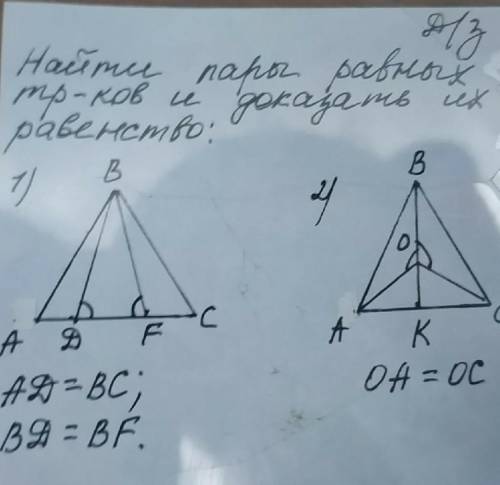 Д/з
Найти пары равных
тр-ков и доказать их
равенство:
1)
B
A
D
F
C
AD = BC;
BD = BF.
2)
B
O
A
K
C
OA = OC